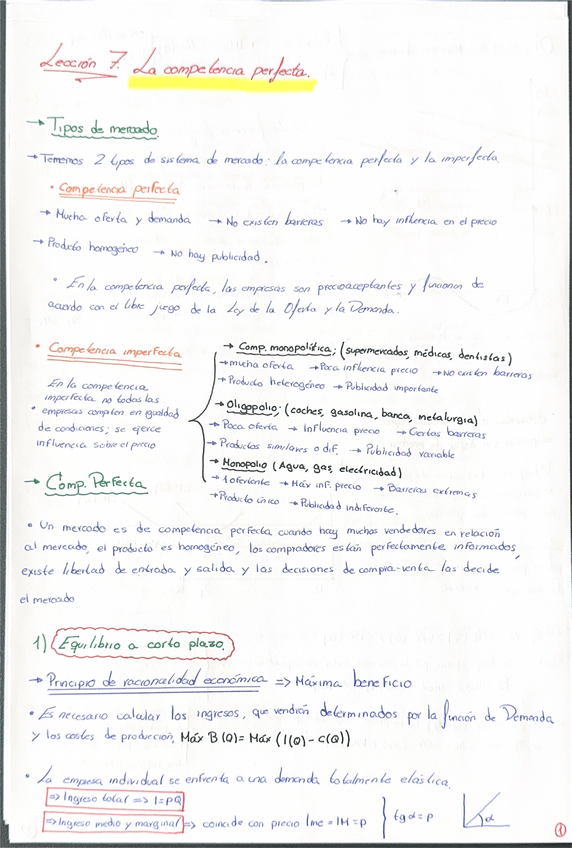 Lección 7. La competencia perfecta.
→ Tipos de mercado
→ Tenemos 2 tipos de sistema de mercado: la competencia perfecta y la imperfecta.
• Competencia perfecta
→ Mucha oferta y demanda → No existen barreras → No hay influencia en el precio
→ Producto homogéneo → No hay publicidad.
• En la competencia perfecta, las empresas son precioaceptantes y funcionan de
acuerdo con el libre juego de la Ley de la Oferta y la Demanda.
• Competencia imperfecta
En la competencia
imperfecta no todas las
• empresas compiten en igualdad
de condiciones; se ejerce
influencia sobre el precio
→ Comp. monopolítica; (supermercados, médicas, dentistas)
→ mucha oferta → Poca influencia precio → No existen barreras
→ Producto heterogéneo → Publicidad importante
→ Oligopolio: (coches, gasolina, banca, metalurgia)
→ Poca oferta → Influencia precio → Ciertas barreras
→ Productos similares o dif. → Publicidad variable
→ Monopolio (Agua, gas, electricidad)
→ 1 oferente → Máx inf. precio → Barreras extremas
→ Producto único → Publicidad indiferente.
→ Comp. Perfecta
• Un mercado es de competencia perfecta cuando hay muchos vendedores en relación
al mercado, el producto es homogéneo, los compradores están perfectamente informados,
existe libertad de entrada y salida y las decisiones de compra-venta las decide
el mercado
1) Equilibrio a corto plazo.
→ Principio de racionalidad económica => Máximo beneficio
• Es necesario calcular los ingresos, que vendrán determinados por la función de Demanda
y los costes de producción. Máx B (Q) = Máx (I(Q) - C(Q))
• La empresa individual se enfrenta a una demanda totalmente elástica.
=> Ingreso total => I = PQ
=> Ingreso medio y marginal => coincide con precio Ime = IM = p } tg α = p
α
1